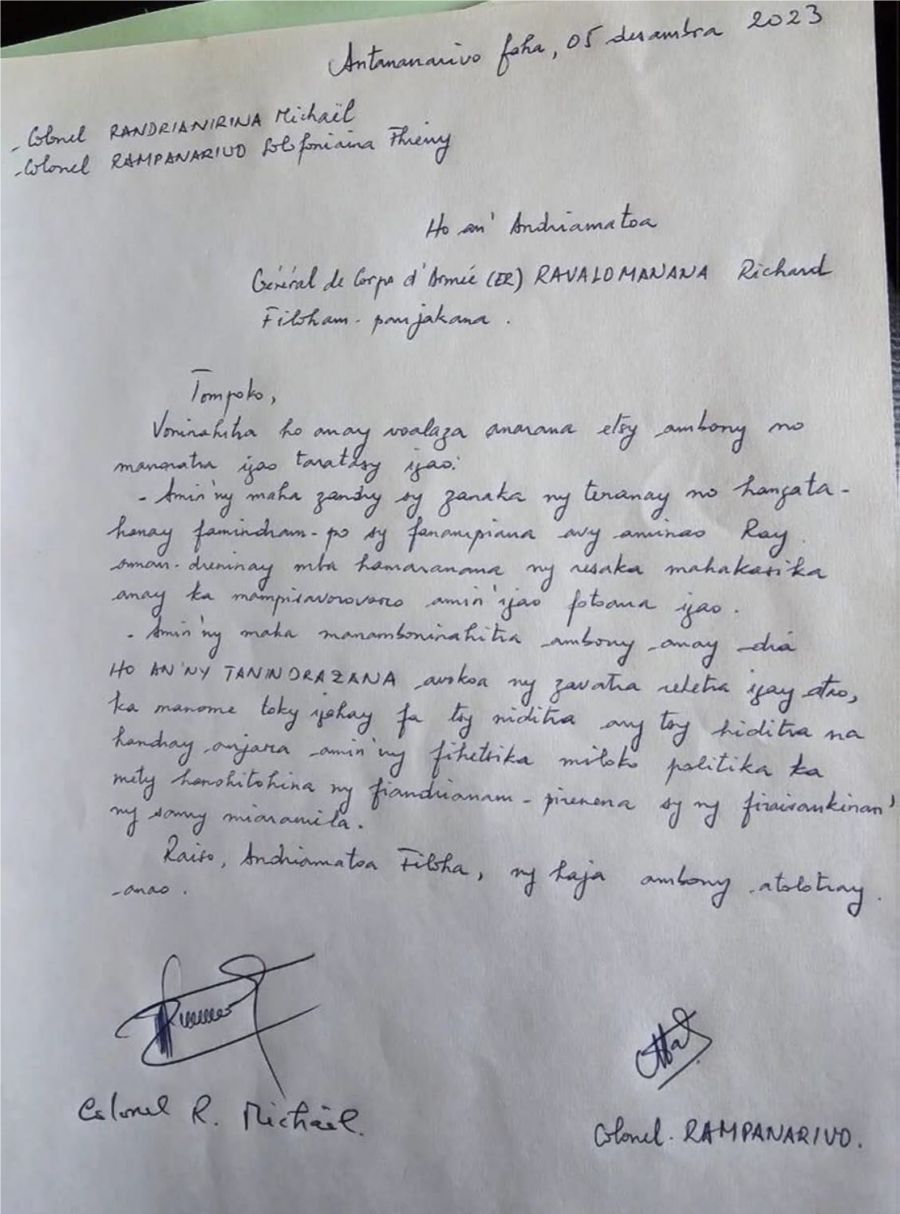 Antananarivo faha, 05 desambra 2023
- Colonel RANDRIANIRINA Michaël
- Colonel RAMPANARIVO Lolofoniaina Thierry
Ho an' Andriamatoa
Général de Corps d'Armée (ER) RAVALOMANANA Richard
Filoham-panjakana.
Tompoko,
Voninahitra ho anay voalaza anarana etsy ambony no
manoratra izao taratasy izao:
- Amin'ny maha zandry sy zanaka ny tenanay no hangata-
hanay famindram-po sy fanampiana avy aminao Ray
aman-dreninay mba hamaranana ny resaka mahakasika
anay ka mampisavorovoro amin'izao fotoana izao.
- Amin'ny maha manamboninahitra ambony anay dia
HO AN'NY TANINDRAZANA avokoa ny zavatra rehetra izay atao,
ka manome toky izahay fa tsy niditra ary tsy hiditra na
handray anjara amin'ny fihetsika miloko politika ka
mety hanohitohina ny fiandrianam-pirenena sy ny firaisankinan'
ny samy miaramila.
Raiso, Andriamatoa Filoha, ny haja ambony atolotray
anao.
Colonel R. Michaël.
Colonel. RAMPANARIVO.